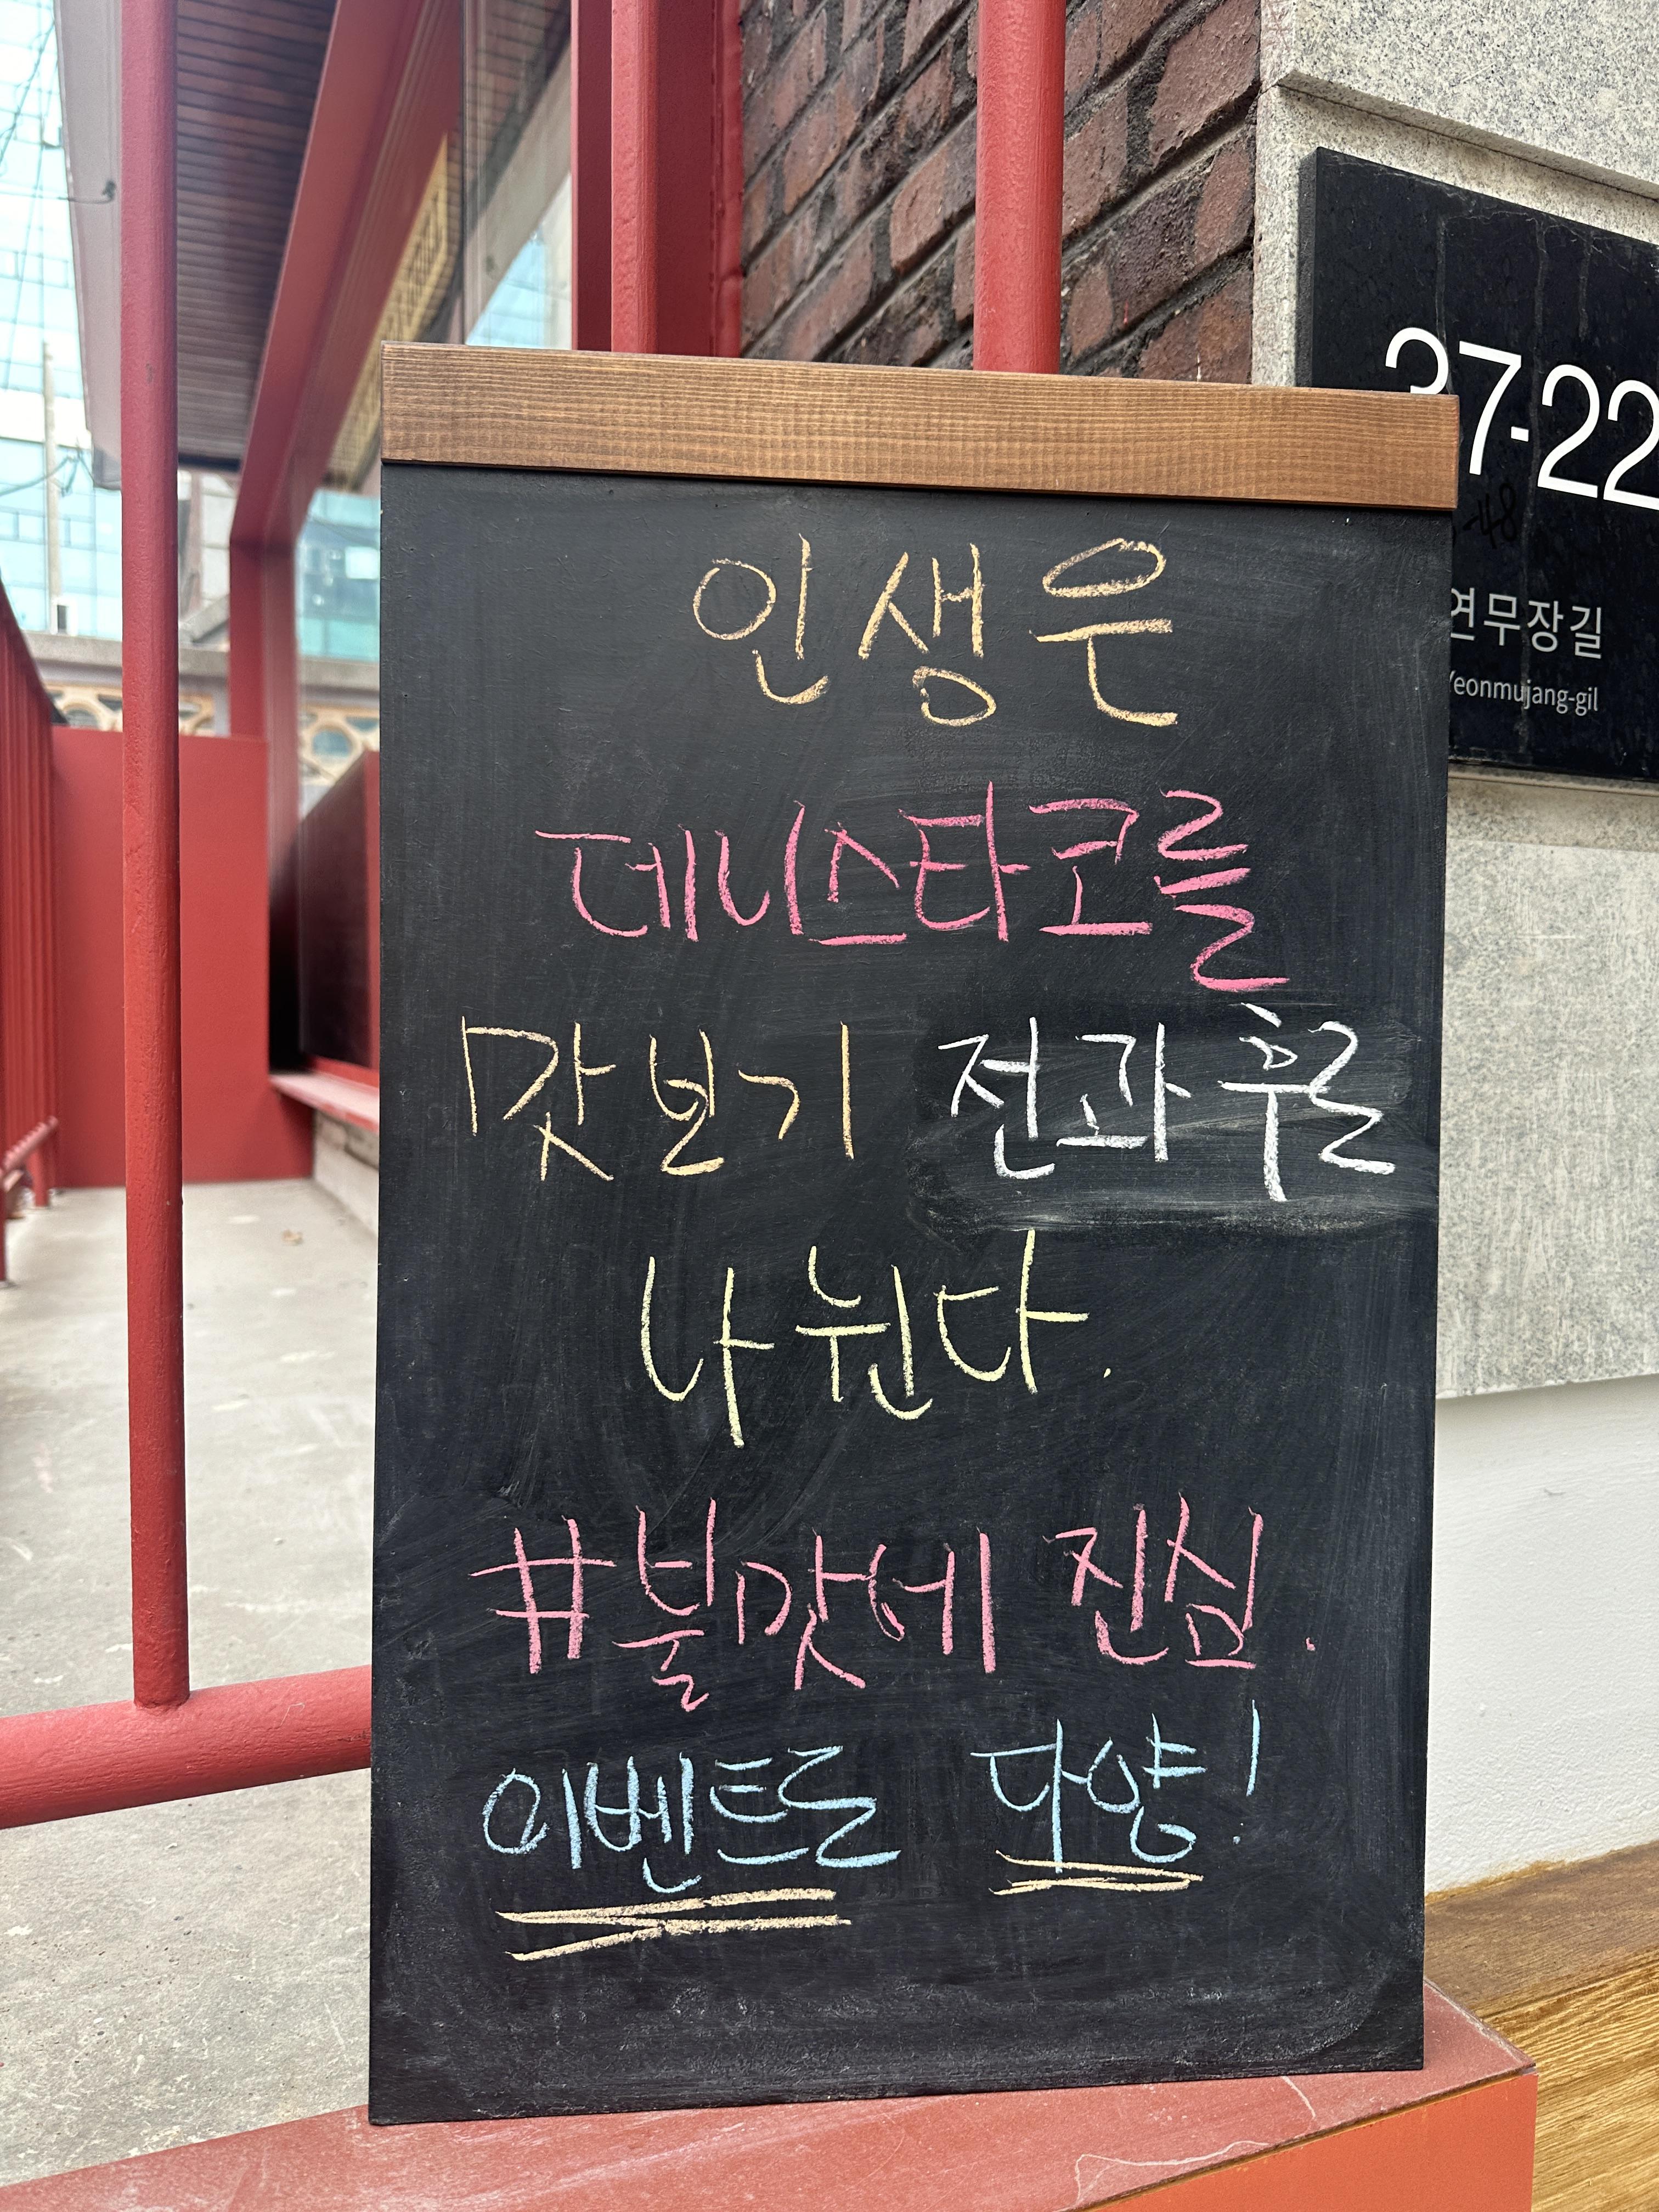 37-22
연무장길
Yeonmujang-gil
인생은
데니스타코를
맛보기 전과 후로
나뉜다.
#불맛에 진심.
이벤트도 다양!